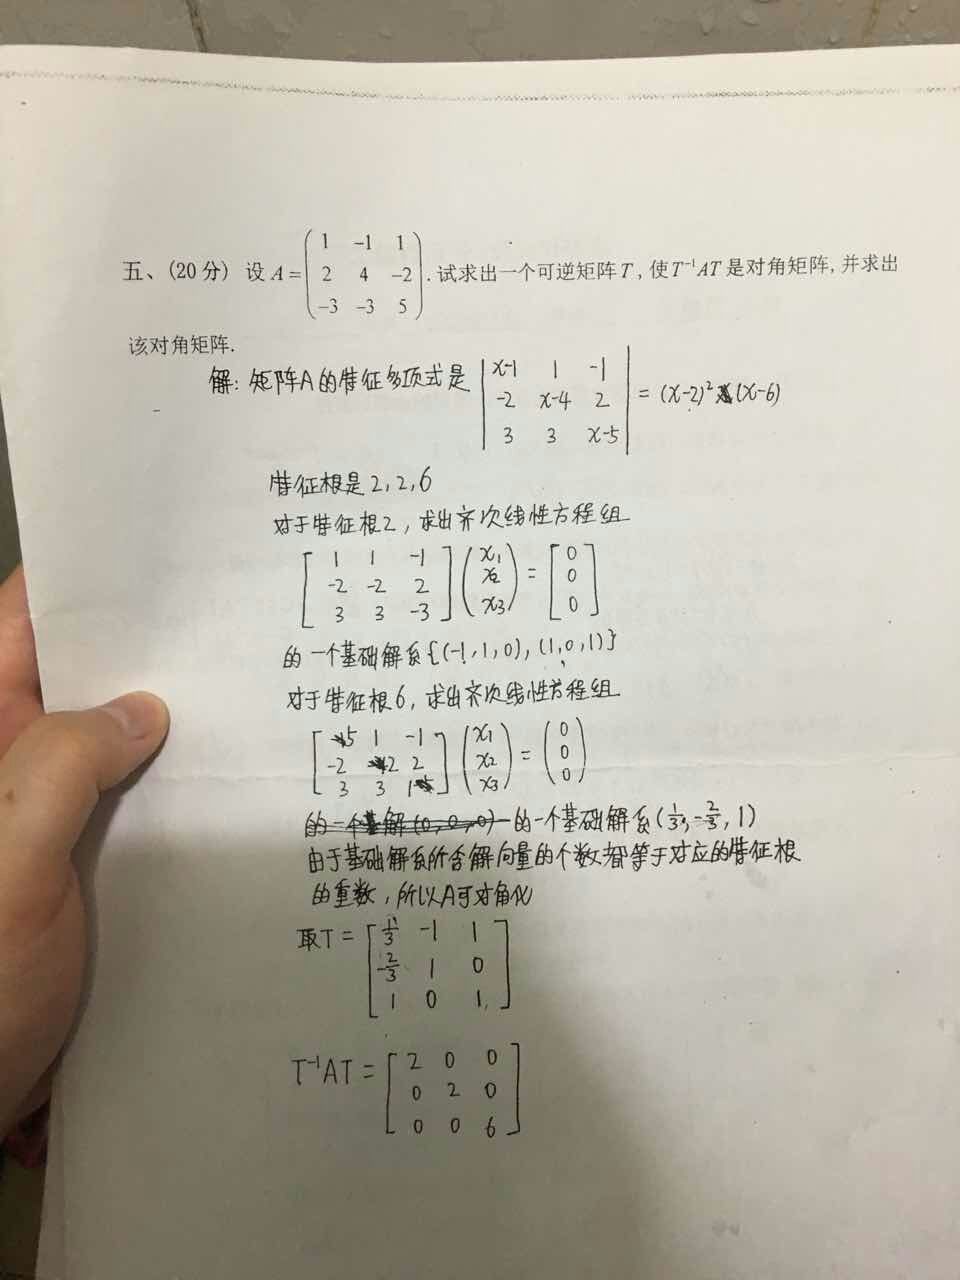 五、(20分) 设 A = ( 1 -1 1 ; 2 4 -2 ; -3 -3 5 ). 试求出一个可逆矩阵 T, 使 T⁻¹AT 是对角矩阵, 并求出
该对角矩阵.
解: 矩阵A的特征多项式是 | x-1 1 -1 ; -2 x-4 2 ; 3 3 x-5 | = (x-2)²(x-6)
特征根是 2, 2, 6
对于特征根2, 求出齐次线性方程组
[ 1 1 -1 ; -2 -2 2 ; 3 3 -3 ] ( x₁ ; x₂ ; x₃ ) = [ 0 ; 0 ; 0 ]
的一个基础解系{(-1,1,0), (1,0,1)}
对于特征根6, 求出齐次线性方程组
[ 5 1 -1 ; -2 2 2 ; 3 3 1 ] ( x₁ ; x₂ ; x₃ ) = ( 0 ; 0 ; 0 )
的一个基础解系(1/3, -2/3, 1)
由于基础解系所含解向量的个数都等于对应的特征根
的重数, 所以A可对角化
取T = [ 1/3 -1 1 ; -2/3 1 0 ; 1 0 1 ]
T⁻¹AT = [ 2 0 0 ; 0 2 0 ; 0 0 6 ]